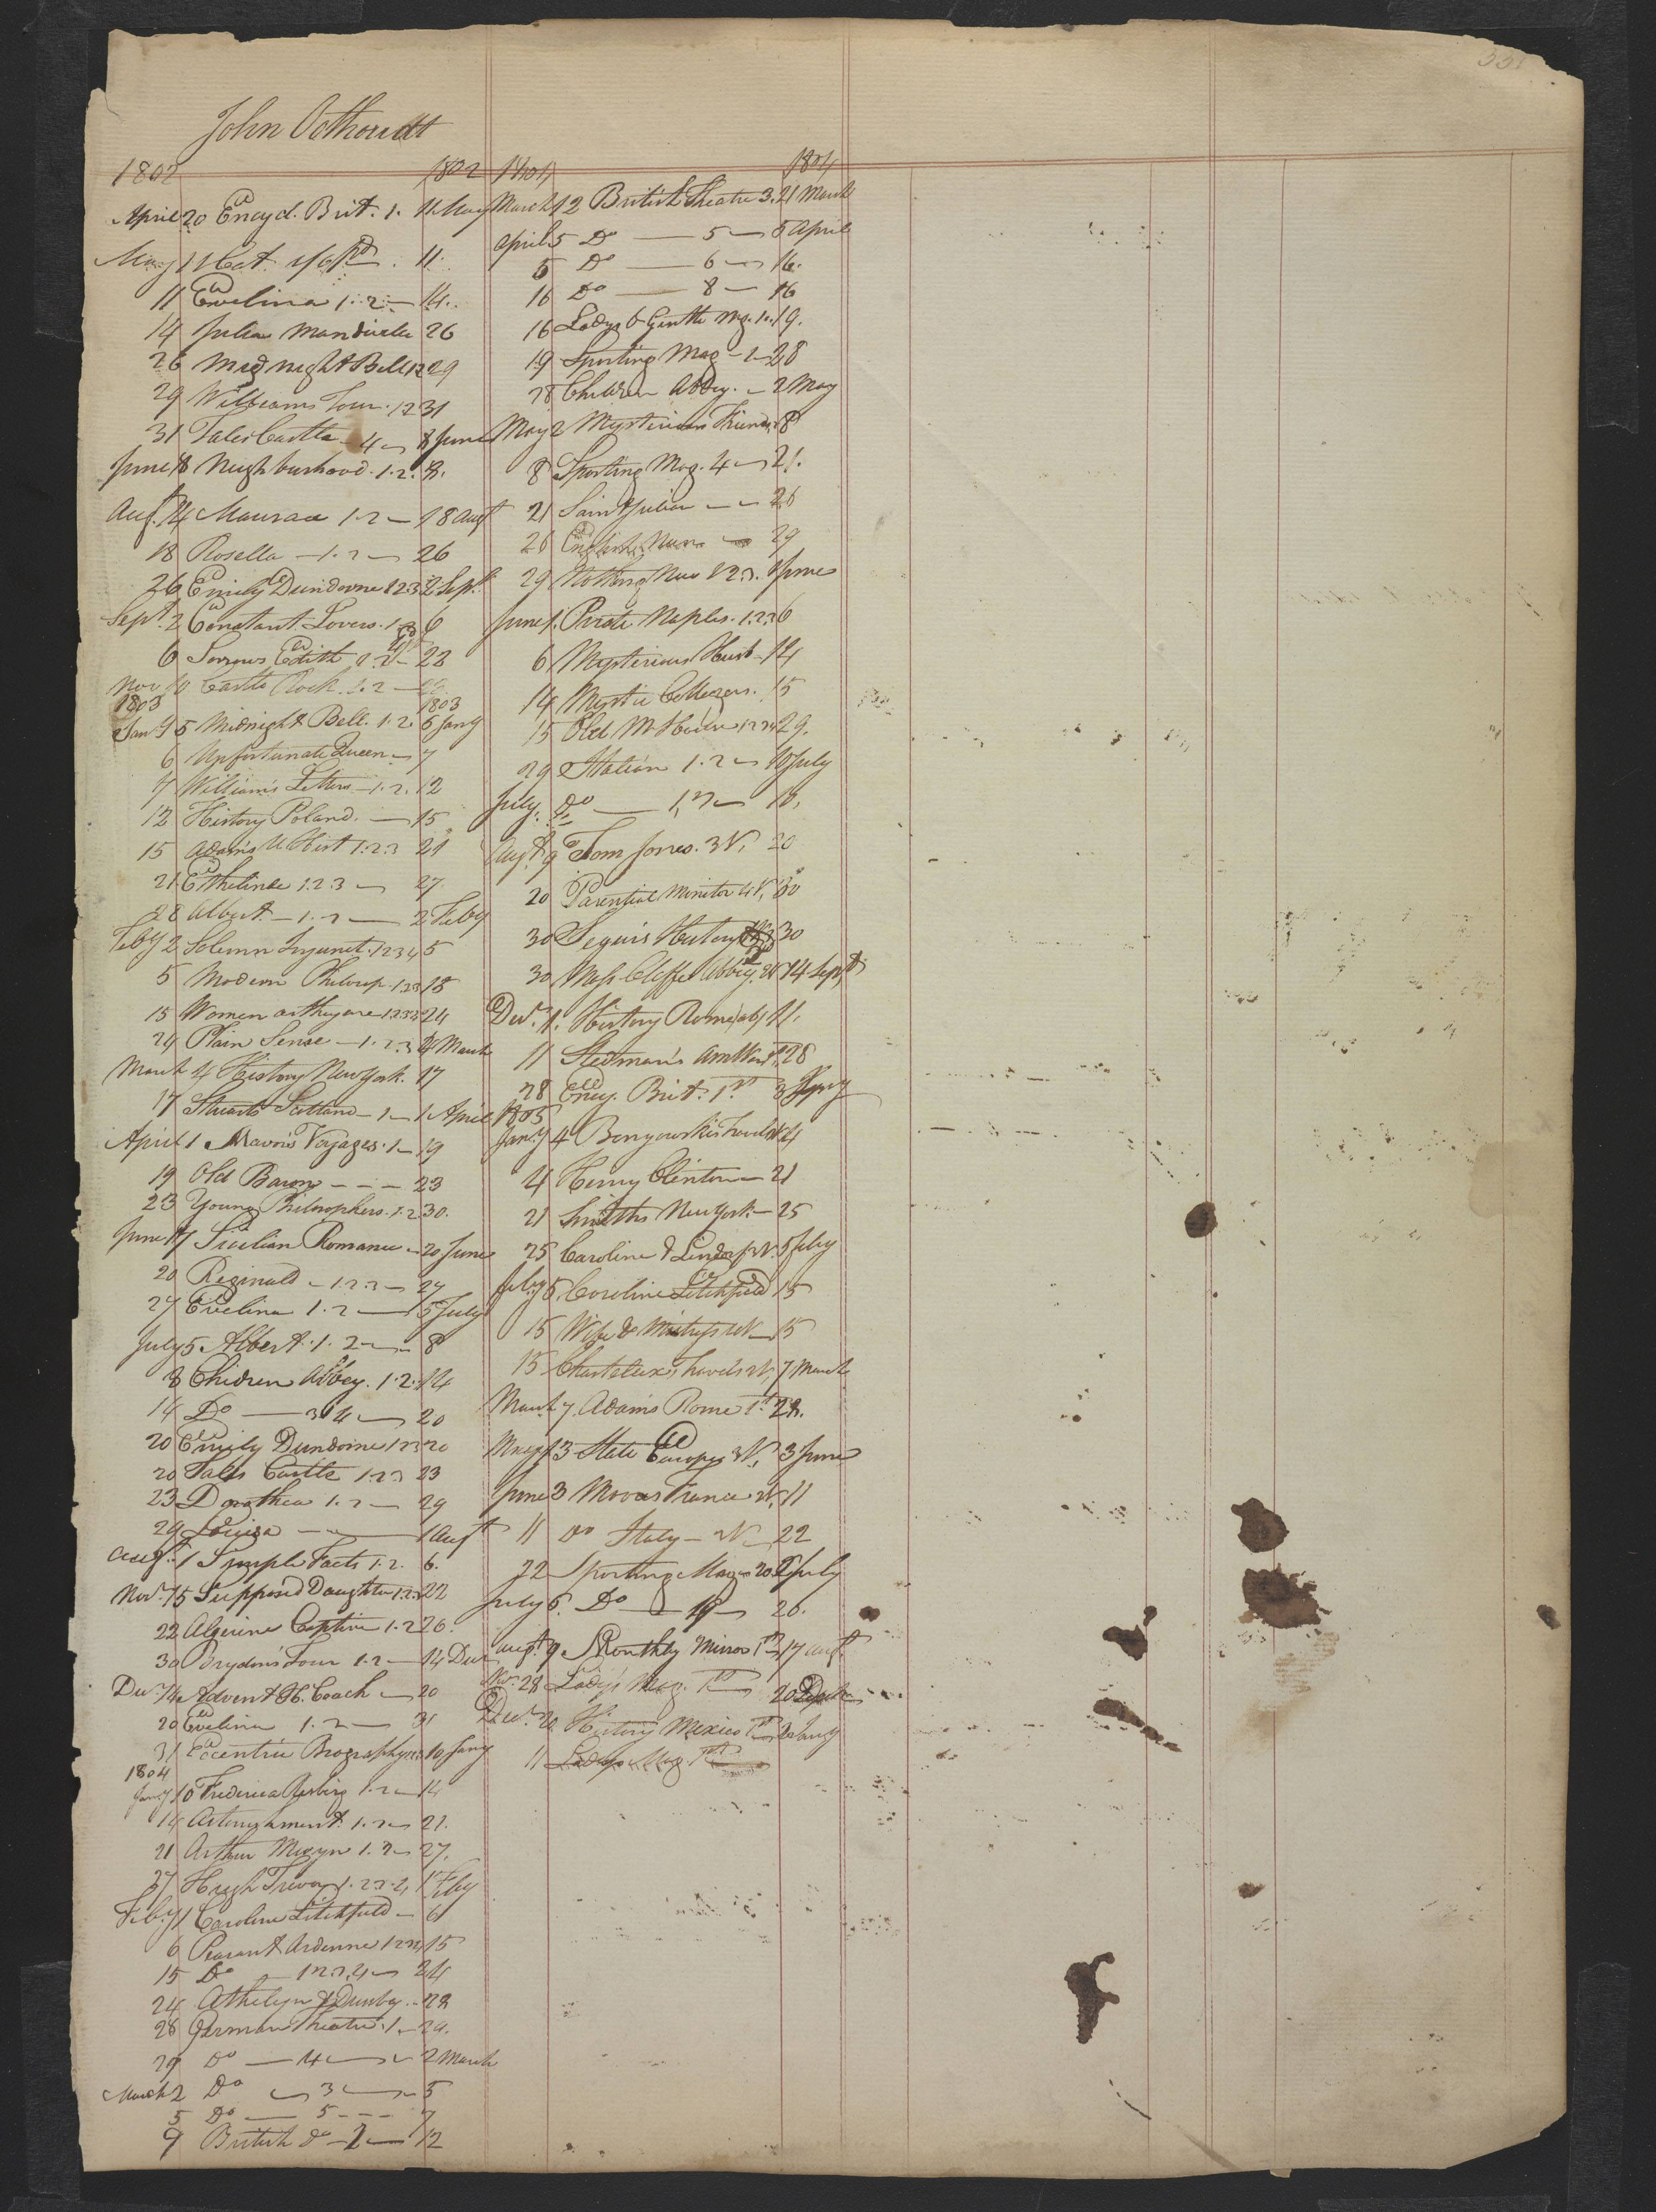 John Oothoudt
1802 1802
April 20 Encycl. Brit. 1. 11 May
May 11 11.
11 Evelina 1.2 — 14.
14 Julia Mandivilla 26
26 Midnight Bell 1 2 29
29 Williams Tour. 1 2 31
31 Tales Castle 4 8 June
June 8 Neighbourhood. 1.2.
Augt. 14 1.2 — 18 Augt
18 Rosella — 1.2 — 26
26 Emily Dundorne 1 2 3 2 Sept.
Sept. 2 Constant Lovers. 6
6 Sorrows Edith 22
Nov Castle Rock. 1.2 —
1803 1803
Jany 5 Midnight Bell. 1.2. 6 Jany
6 Unfortunate Queen — 7
7 Williams Letters — 1.2. 12
12 History Poland. — 15
15 Adams U Hist 1.2.3 21
21 Ethelinde 1.2.3 — 27
28 Albert — 1.2 — 2 Feby
Feby 2 Solemn Injunct. 1 2 3 4 5
5 Modern Philosop. 1 2 3 15
15 Women as they are 1 2 3 4 24
24 Plain Sense — 1.2.3 4 March
March 4 History New York. 17
17 Stuarts Scotland — 1 — 1 April
April 1 Mavors Voyages. 1 — 19
19 Old Baron — — — 23
23 Young Philosophers. 1.2 30.
June 17 Sicilian Romance — 20 June
20 Reginald — 1.2.3 — 27
27 Evelina 1.2 — 5 July
July 5 Albert. 1.2 — 8
8 Chidren Abbey. 1.2. 14
14 Do — 3 & 4 — 20
20 Emily Dundorne 1 2 3 20
20 Tales Castle 1.2.3 23
23 Dorothea 1.2 — 29
29 Louisa — 1 Augt
Augt. 1 Simple Facts 1.2. 6.
Nov. 15 Supposed Daughter 1.2.3 22
22 Algerine Captive 1.2 26.
30 Brydons Tour 1.2 — 14 Decr
Decr. 14 Advent H. Coach — 20
20 Evelina 1.2 — 31
31 Eccentric Biography 10 Jany
1804
Jany 10 Frederica Risberg 1.2 — 14
14 Astonishment. 1.2 — 21.
21 Arthur Mervyn 1.2 — 27.
27 Hugh Trevor 1.2.3.4 1 Feby
Feby 1 Caroline Litchfield — 6
6 Peasant Ardenne 1 2 15
15 Do — 24
24 Athelyn & Dunby — 28
28 German Theatre. 1 — 29.
29 Do — 4 — 2 March
March 2 Do — 3 — 5
5 Do — 5 — — — 7
9 British do — 2 — 12
1804 1804
March 12 British Theatre 3. 21 March
April 5 Do — 5 — 5 April
5 Do — 6 — 16.
16 Do — 8 — 16
16 Ladys & Gentle Mg. 1. 19.
19 Sporting Mag — 1 — 28
28 Children Abbey. — 2 May
May 2 Mysterious Friends 8
8 Sporting Mag. 4 — 21.
21 Saint Julian — — 26
26 English Nun — 29
29 Nothing New 1 2 3. 1 June
June 1. Pirate Naples. 1.2.3 6
6 Mysterious Husb — 14
14 Mystic Cottager. 15
15 Old M House 1 2 3 4 29.
29 Italian 1.2 — 10 July
July. Do — 1, 2 — 18.
Augt 9 Tom Jones. 3 V. 20
20 Parental Monitor 4 V. 30
30 Seguis History 30
30 Abbey. 14 Sept
Decr. 1. History Rome 11.
11 Stedman's Am War 1st 28
28 Ency. Brit. 1st 3 Jany
1805
Jany 4 Benyowskis Travels 4
4 Henry Clinton — 21
21 Smiths New York — 25
25 Caroline & 5 Feby
Feby 5 Caroline Litchfield 15
15 Wife & Mistress 15
15 Chastelux's Travels 7 March
March 7 Adams Rome 1st 28.
May 13 State Europe 3 V. 3 June
June 3 Moores France 2 V. 11
11 Do Italy — 2 V — 22
22 Sporting Mag — 20 6 July
July 6. Do — 19 — 26.
Augt. 9 Monthly Mirror 1st — 17 Augt.
Nov. 28 Lady's Mag. 1st 20 Decr
Decr. 20 History Mexico 1st Jany
11 Ladys Mag. 1st